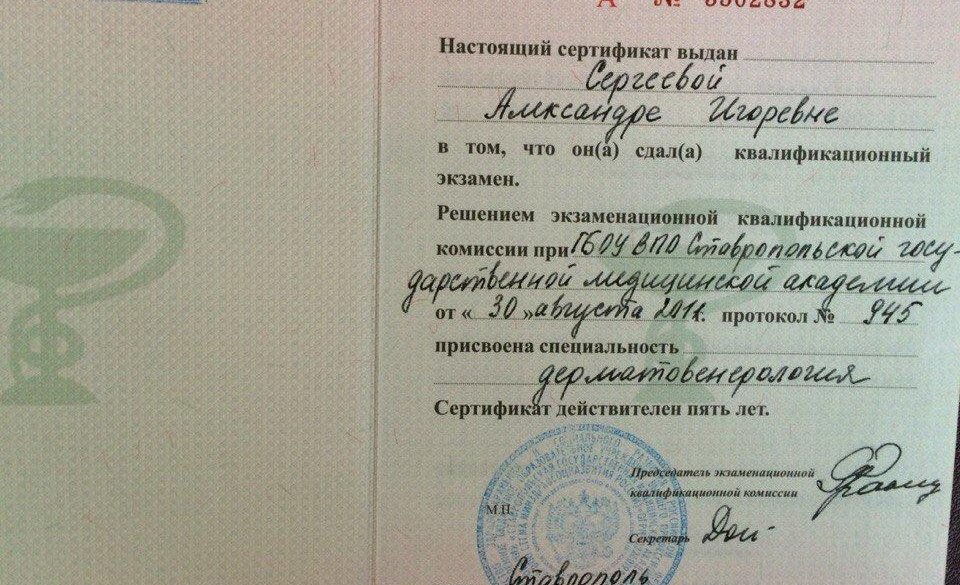 А № 3502832
Настоящий сертификат выдан
Сергеевой
Александре Игоревне
в том, что он(а) сдал(а) квалификационный
экзамен.
Решением экзаменационной квалификационной
комиссии при ГБОУ ВПО Ставропольской госу-
дарственной медицинской академии
от « 30 » августа 2011г. протокол № 945
присвоена специальность
дерматовенерология
Сертификат действителен пять лет.
Председатель экзаменационной
квалификационной комиссии
М.П.
Секретарь
Ставрополь